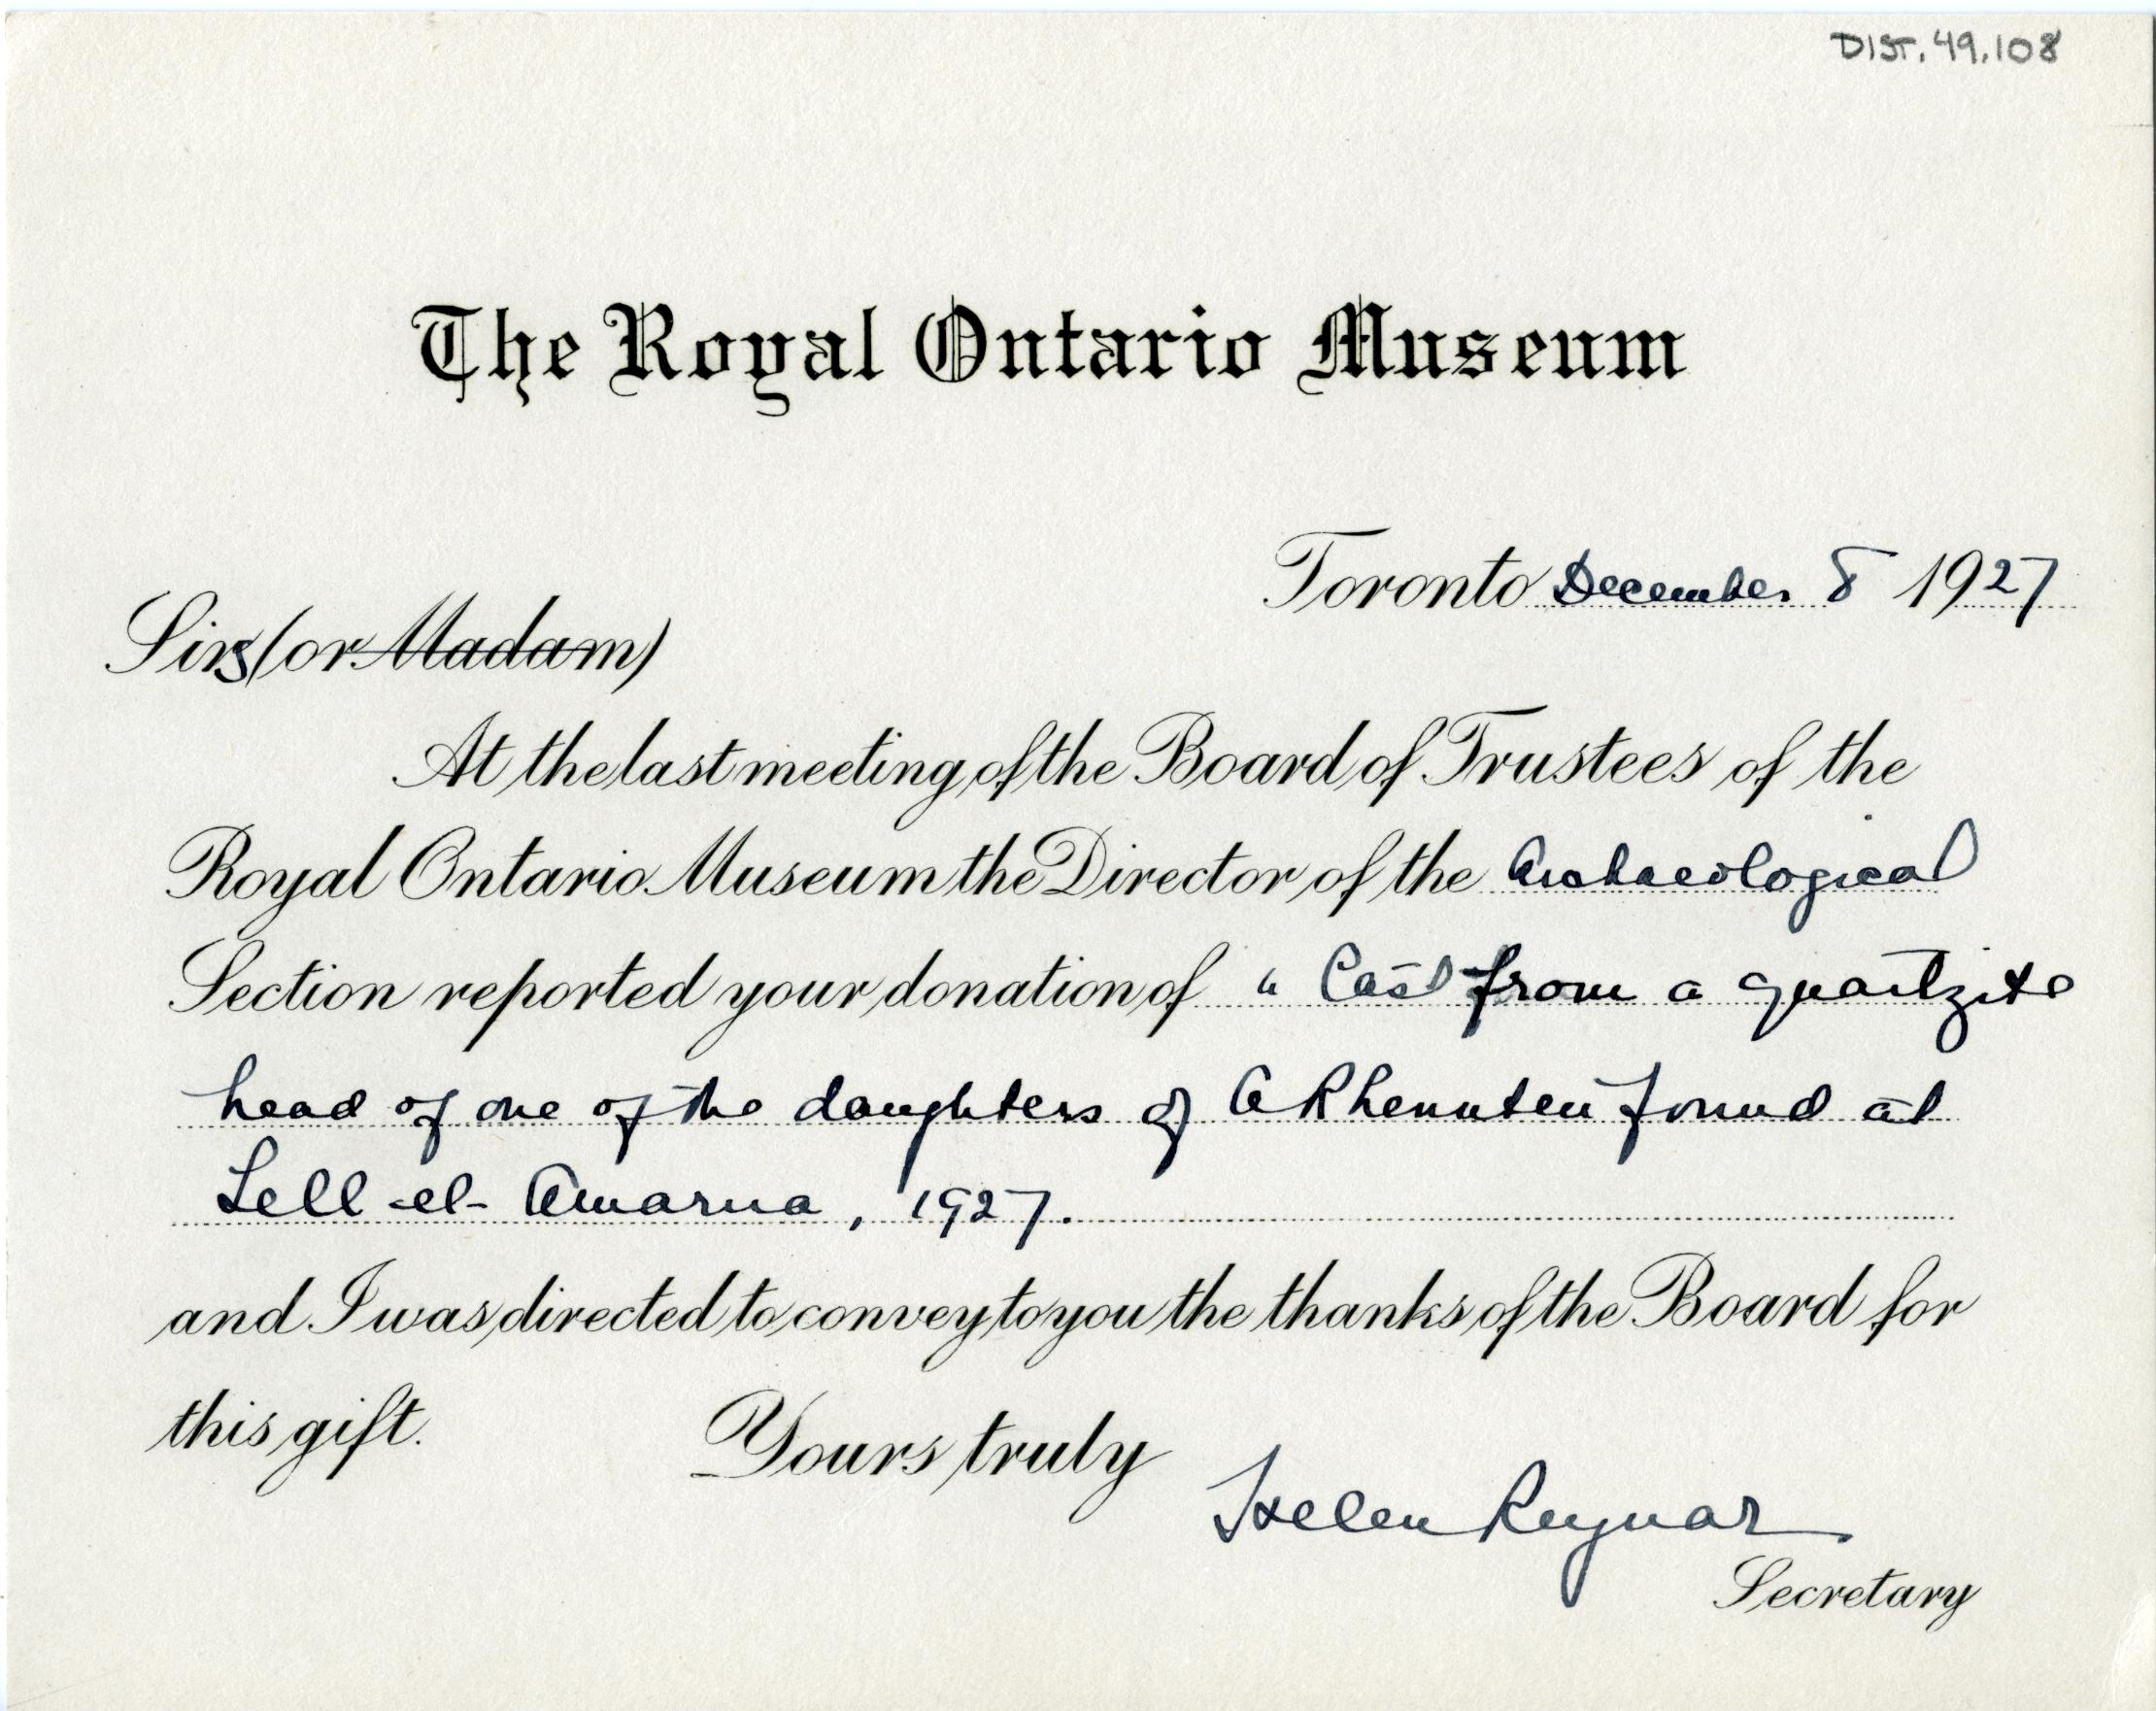 DIST. 49.108
The Royal Ontario Museum
Toronto December 8 1927
Sirs (or Madam)
At the last meeting of the Board of Trustees of the
Royal Ontario Museum the Director of the Archaeological
Section reported your donation of "Cast from a quartzite
head of one of the daughters of Akhenaten found at
Tell-el-Amarna, 1927.
and I was directed to convey to you the thanks of the Board for
this gift. Yours truly
Helen Reynar
Secretary